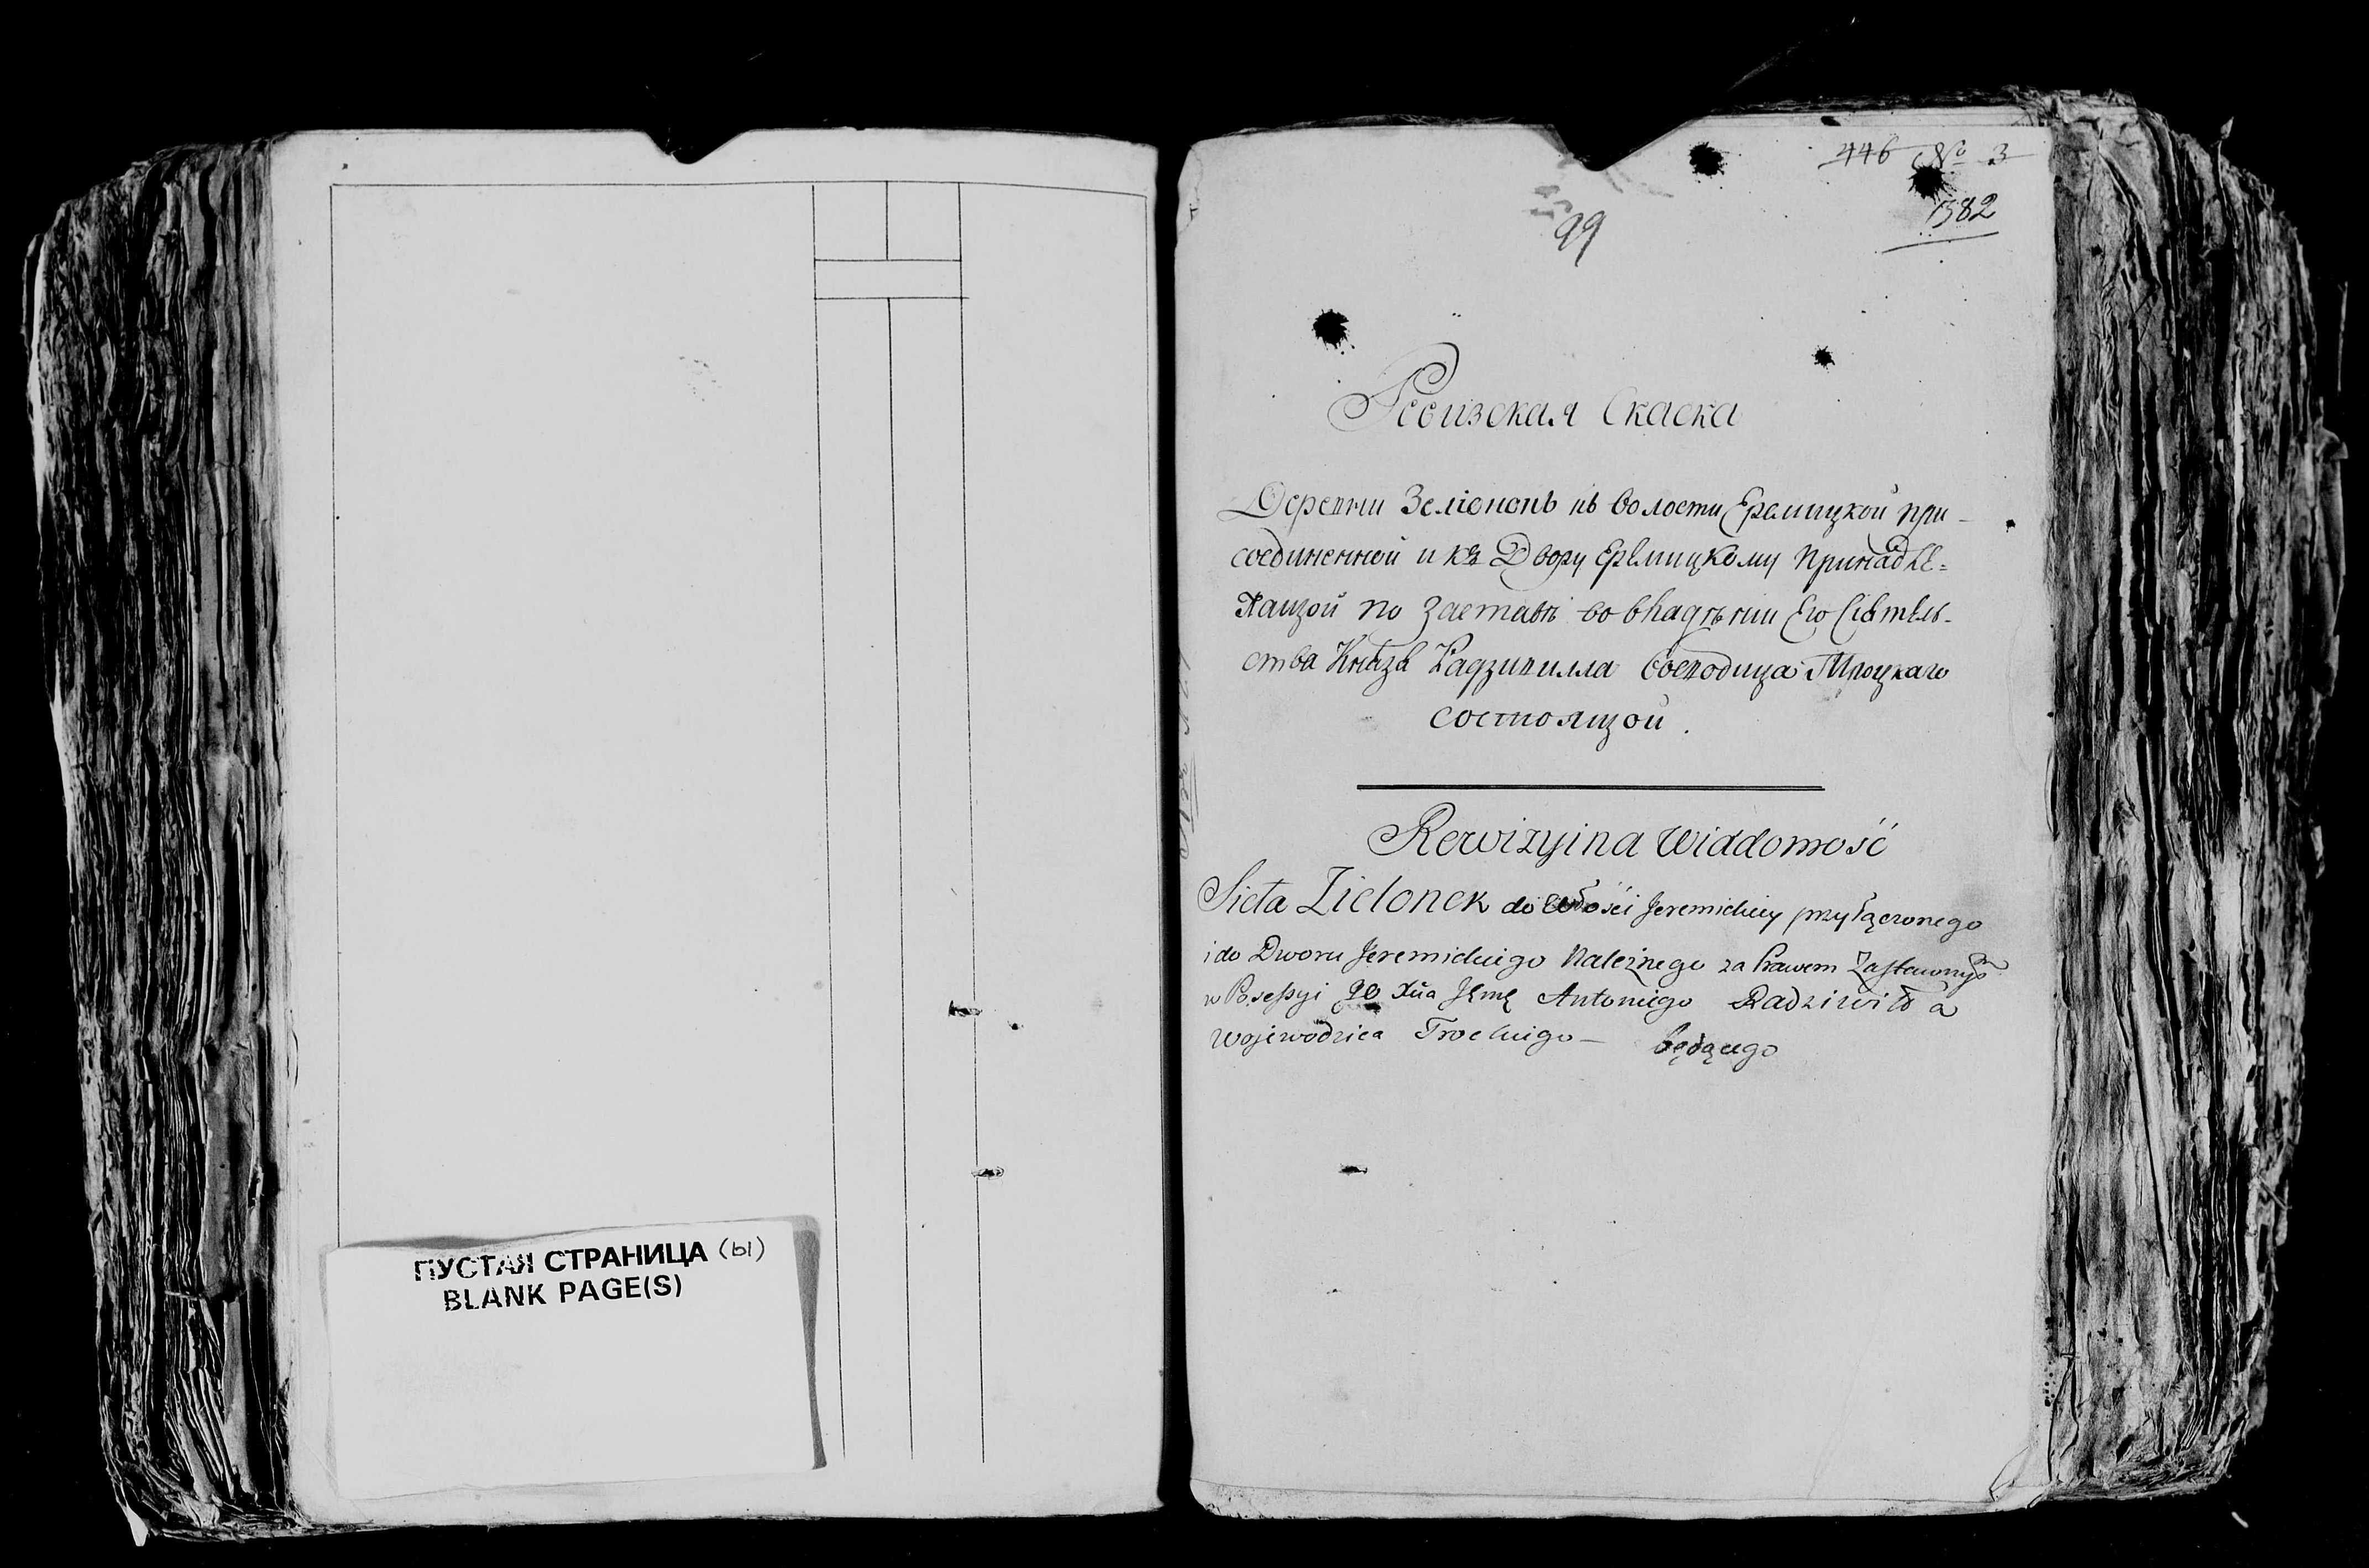 ПУСТАЯ СТРАНИЦА (ы)
BLANK PAGE(S)
446 № 3
1582
99
Ревизская Скаска
Деревни Зелионокъ къ волости Еремицкой при-
соединенной и къ Двору Еремицкому принадле=
жащой по заставѣ во владѣнии Его Сіятель-
ства Князя Радзивилла Воеводица Троцкаго
состоящой.
Rewizyina Wiadomość
Sieła Zielonek do Włości Jeremickiey przyłączonego
i do Dworu Jeremickiego Należnego za Prawem Zastawnym
w Possessyi JO Xcia Jmę Antoniego Radziwiłła
Wojewodzica Trockiego — będącego